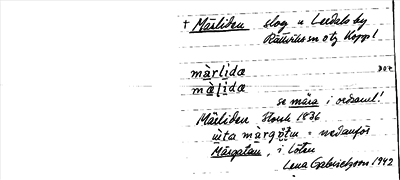 † Märliden skog n Lerdals by
Rättviks sn otj Kopp. l
màrlidæ DOZ
màlidæ
se mära i ordsaml!
Märliden Storsk 1836
ùta màrgọ̈tu = nedanför
Märgatan, i Loten
Lena Gabrielsson 1942